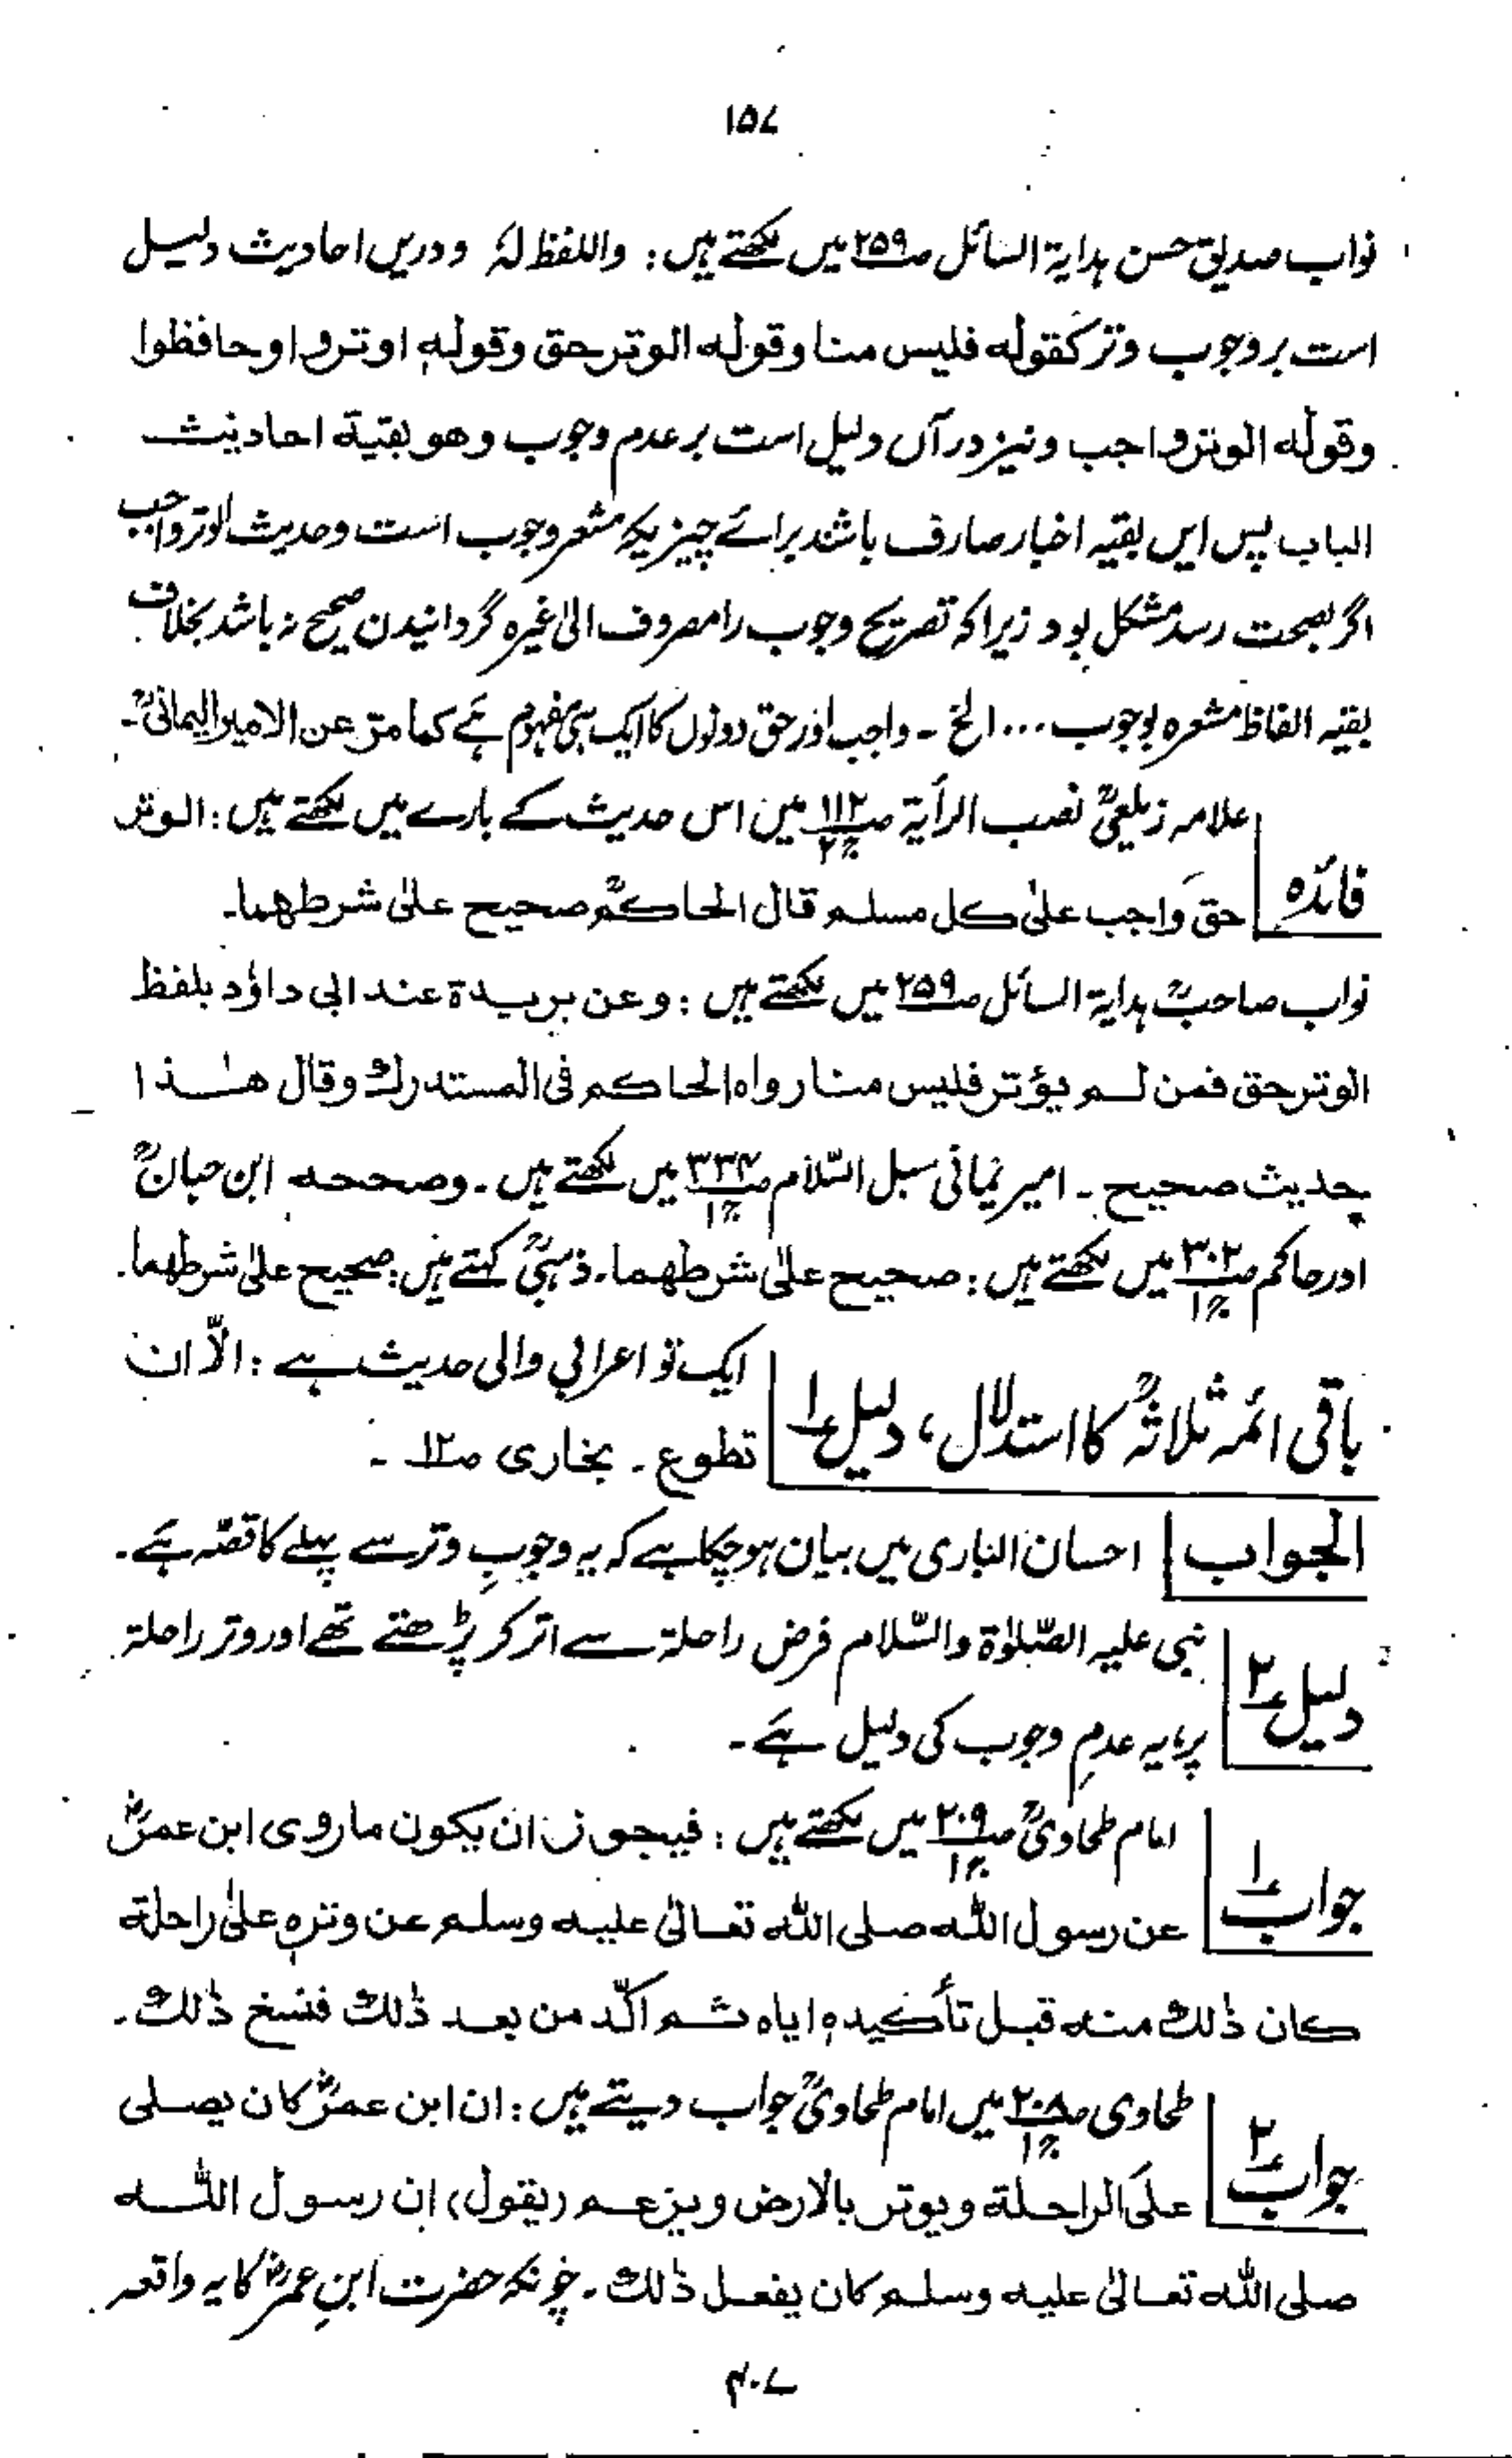 ۱۵۷
نواب صدیق حسن ہدایۃ السائل صـ۲۵۹ میں لکھتے ہیں: واللفظ لہٗ و دریں احادیث دلیل
است بر وجوب وتر کقوله فلیس منا وقوله الوتر حق وقولهٖ اوتروا وحافظوا
وقوله الوتر واجب و نیز در آں دلیل است بر عدم وجوب وهو بقیة احادیث
الباب پس ایں بقیہ اخبار صارف باشد برائے چیزیکہ مشعر وجوب است وحدیث الوتر واجب
اگر بصحت رسد مشکل بود زیرا کہ تصریح وجوب را مصروف الیٰ غیرہ گردانیدن صحیح نہ باشد بخلاف
بقیہ الفاظ مشعرہ بوجوب ... الخ ۔ واجب اور حق دونوں کا ایک ہی مفہوم ہے کما مرّ عن الامیر الیمانیؒ۔
فائدہ علامہ زیلعیؒ نصب الرأیۃ صـ۱۱۲ جـ۲ میں اس حدیث کے بارے میں لکھتے ہیں: الوتر
حق واجب علیٰ کل مسلم قال الحاکمؒ صحیح علیٰ شرطهما۔
نواب صاحبؒ ہدایۃ السائل صـ۲۵۹ میں لکھتے ہیں: وعن بریدة عند ابی داؤد بلفظ
الوتر حق فمن لم یؤتر فلیس منا رواہ الحاکم فی المستدرک وقال هٰذا
حدیث صحیح ۔ امیر یمانی سبل السّلام صـ۳۳۴ جـ۱ میں لکھتے ہیں۔ وصححه ابن حبانؒ
اور حاکم صـ۳۰۲ جـ۱ میں لکھتے ہیں: صحیح علیٰ شرطهما۔ ذہبیؒ کہتے ہیں: صحیح علیٰ شرطهما۔
باقی ائمہ ثلاثہؒ کا استدلال، دلیل ۱ ایک تو اعرابی والی حدیث ہے: الاّ ان
تطوع ۔ بخاری صـ۱۲ ۔
الجواب احسان الباری میں بیان ہوچکا ہے کہ یہ وجوبِ وتر سے پہلے کا قصّہ ہے۔
دلیل ۲ نبی علیہ الصّلوٰۃ والسّلام فرض راحلۃ سے اتر کر پڑھتے تھے اور وتر راحلۃ
پر، یہ عدمِ وجوب کی دلیل ہے۔
جواب ۱ امام طحاویؒ صـ۲۰۹ جـ۱ میں لکھتے ہیں: فیجوز ان یکون ما روی ابن عمرؓ
عن رسول اللّٰه صلی اللّٰه تعالیٰ علیه وسلم عن وترهٖ علیٰ راحلة
کان ذٰلک منه قبل تأکیدهٖ ایاہ ثم اکّد من بعد ذٰلک فنسخ ذٰلک۔
جواب ۲ طحاوی صـ۲۰۸ جـ۱ میں امام طحاویؒ جواب دیتے ہیں: ان ابن عمرؓ کان یصلی
علی الراحلة ویوتر بالارض ویزعم (یقول) ان رسول اللّٰه
صلی اللّٰه تعالیٰ علیه وسلم کان یفعل ذٰلک۔ چونکہ حضرت ابنِ عمرؓ کا یہ واقعہ
۷۰۴